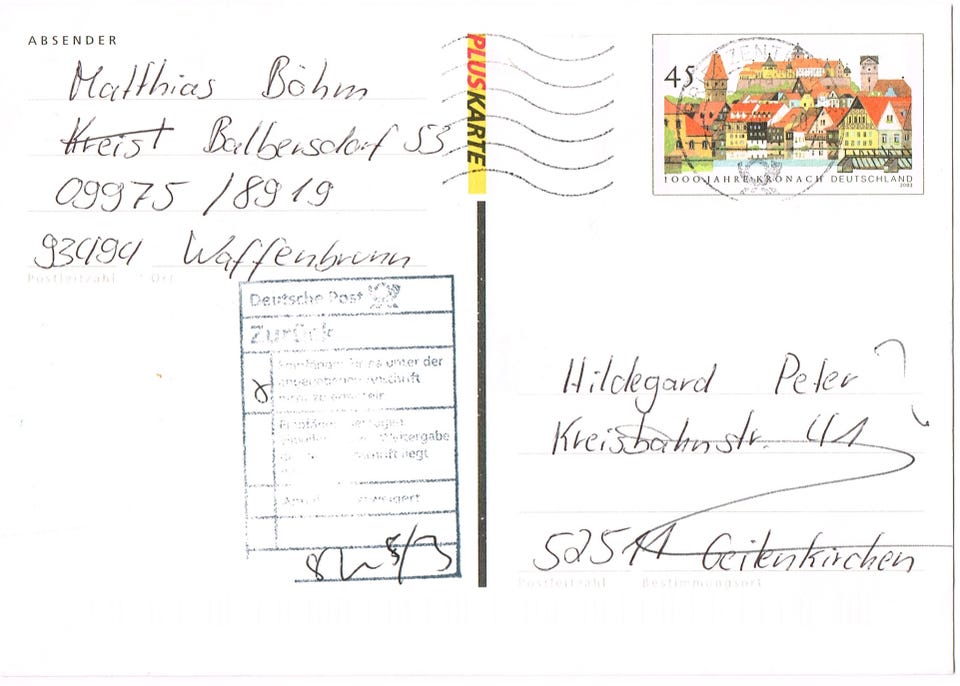 ABSENDER
Matthias Böhm
Kreist Balbersdorf 53
09975 / 8919
93494 Waffenbrunn
Postleitzahl Ort
PLUSKARTE
45
1000 JAHRE KRONACH DEUTSCHLAND
2003
Deutsche Post
Zurück
Empfänger ist unter der
angegebenen Anschrift
nicht zu ermitteln
Weitergabe
liegt
verweigert
8/3
Hildegard Peter ?
Kreisbahnstr. 41
52511 Geilenkirchen
Postleitzahl Bestimmungsort